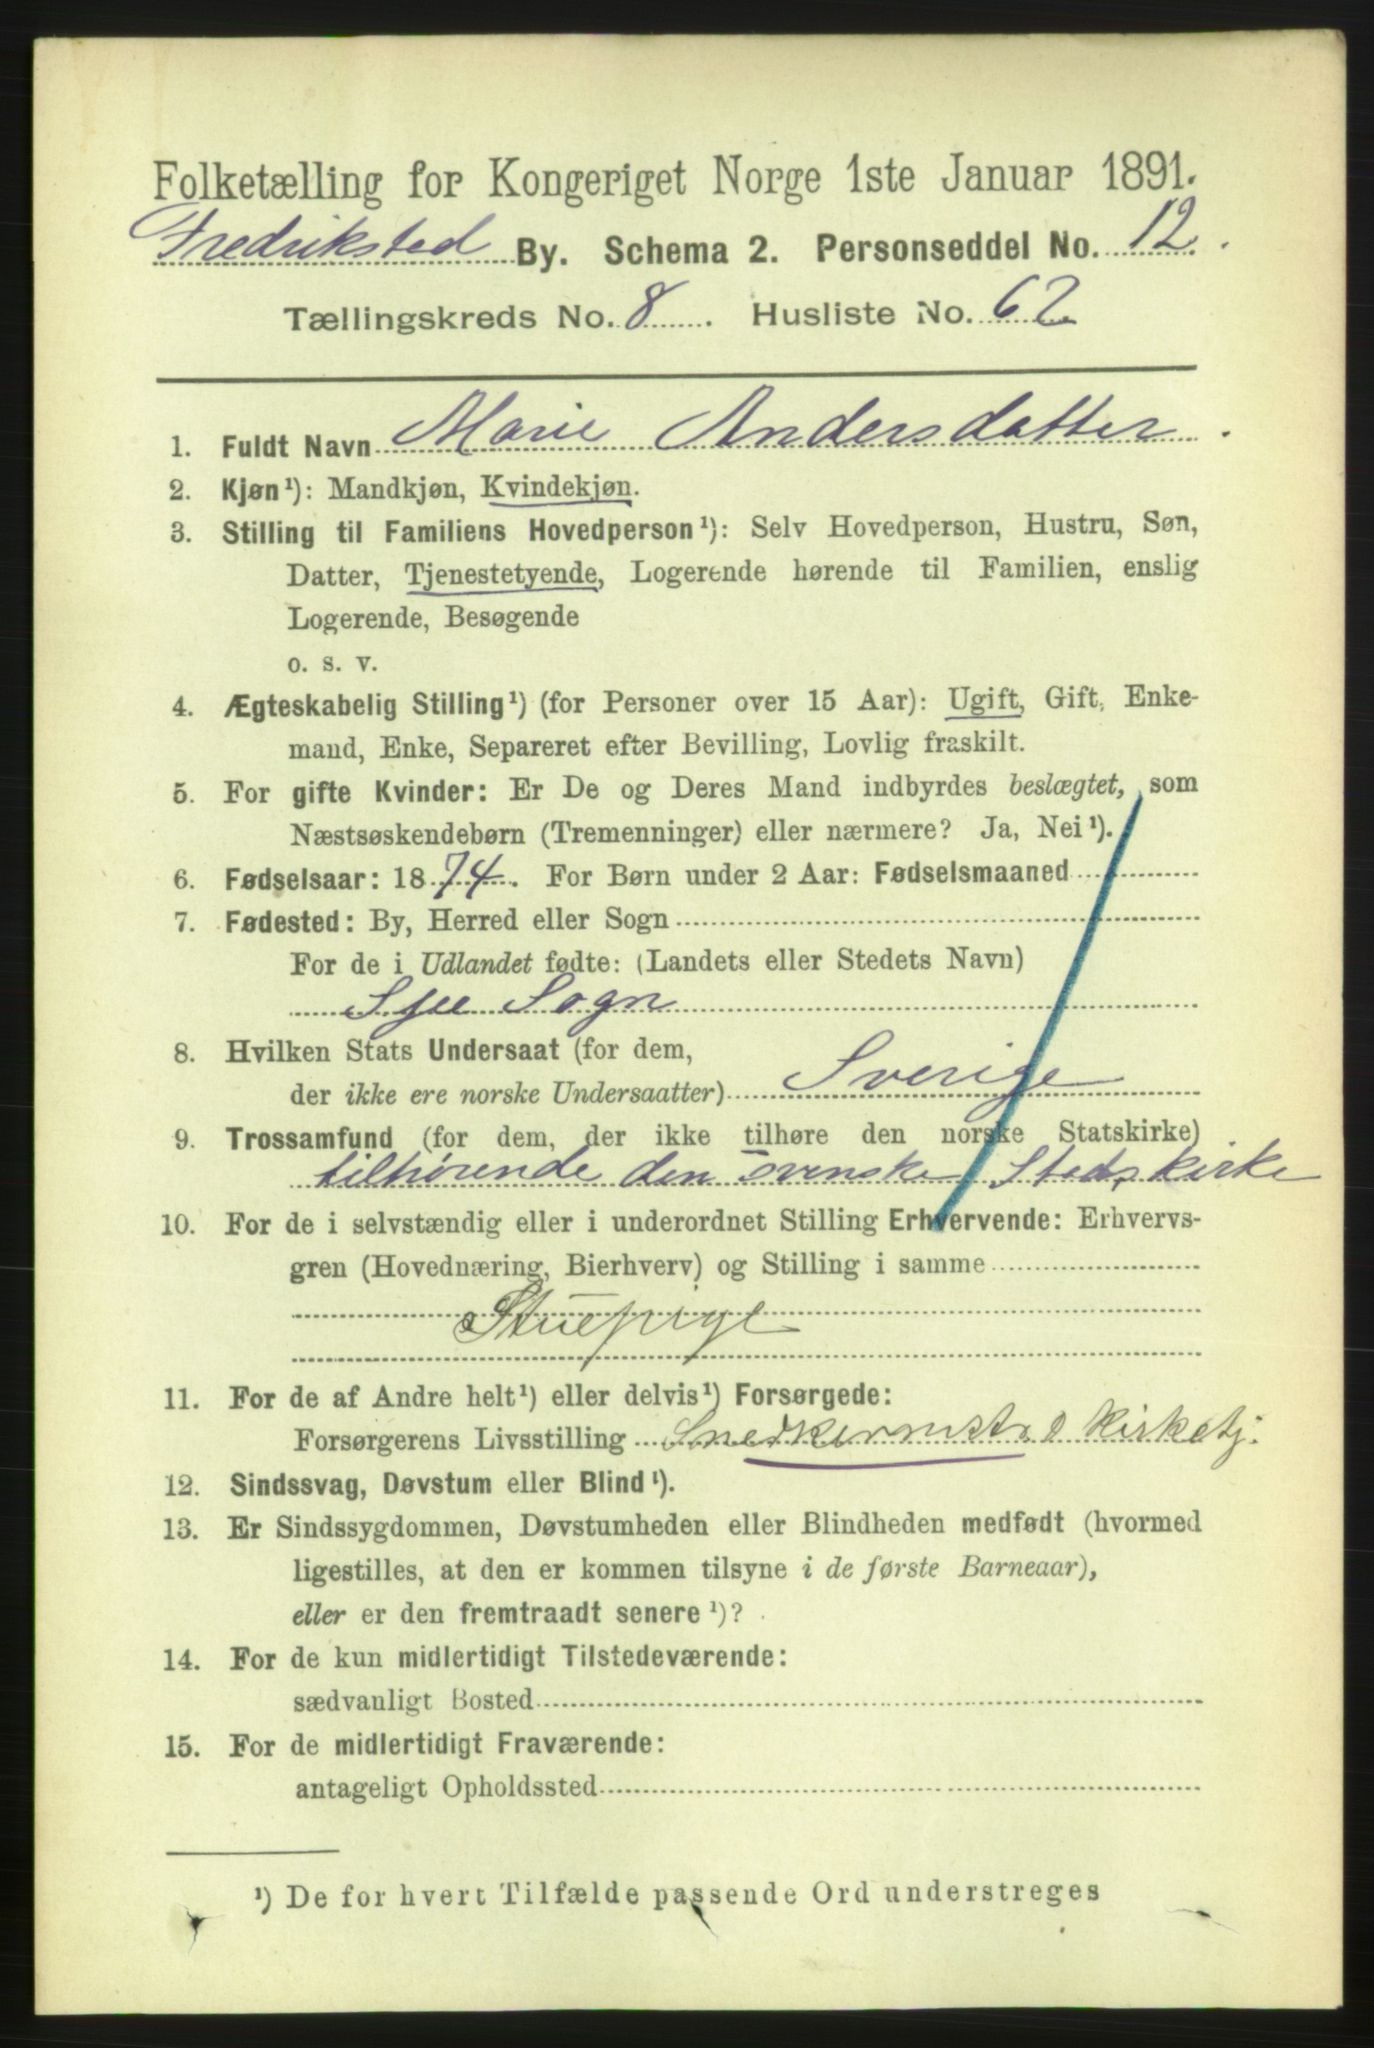 Folketælling for Kongeriget Norge 1ste Januar 1891.
Fredrikstad By. Schema 2. Personseddel No. 12.
Tællingskreds No. 8. Husliste No. 62
1. Fuldt Navn Marie Andersdatter.
2. Kjøn¹): Mandkjøn, Kvindekjøn.
3. Stilling til Familiens Hovedperson¹): Selv Hovedperson, Hustru, Søn,
Datter, Tjenestetyende, Logerende hørende til Familien, enslig
Logerende, Besøgende
o. s. v.
4. Ægteskabelig Stilling¹) (for Personer over 15 Aar): Ugift, Gift, Enke-
mand, Enke, Separeret efter Bevilling, Lovlig fraskilt.
5. For gifte Kvinder: Er De og Deres Mand indbyrdes beslægtet, som
Næstsøskendebørn (Tremenninger) eller nærmere? Ja, Nei¹).
6. Fødselsaar: 1874. For Børn under 2 Aar: Fødselsmaaned
7. Fødested: By, Herred eller Sogn
For de i Udlandet fødte: (Landets eller Stedets Navn)
Sogn
8. Hvilken Stats Undersaat (for dem,
der ikke ere norske Undersaatter) Sverige
9. Trossamfund (for dem, der ikke tilhøre den norske Statskirke)
tilhørende den svenske Stadskirke
10. For de i selvstændig eller i underordnet Stilling Erhvervende: Erhvervs-
gren (Hovednæring, Bierhverv) og Stilling i samme
Stuepige
11. For de af Andre helt¹) eller delvis¹) Forsørgede:
Forsørgerens Livsstilling Snedkermstr. & Kirketj.
12. Sindssvag, Døvstum eller Blind¹).
13. Er Sindssygdommen, Døvstumheden eller Blindheden medfødt (hvormed
ligestilles, at den er kommen tilsyne i de første Barneaar),
eller er den fremtraadt senere¹)?
14. For de kun midlertidigt Tilstedeværende:
sædvanligt Bosted
15. For de midlertidigt Fraværende:
antageligt Opholdssted
¹) De for hvert Tilfælde passende Ord understreges